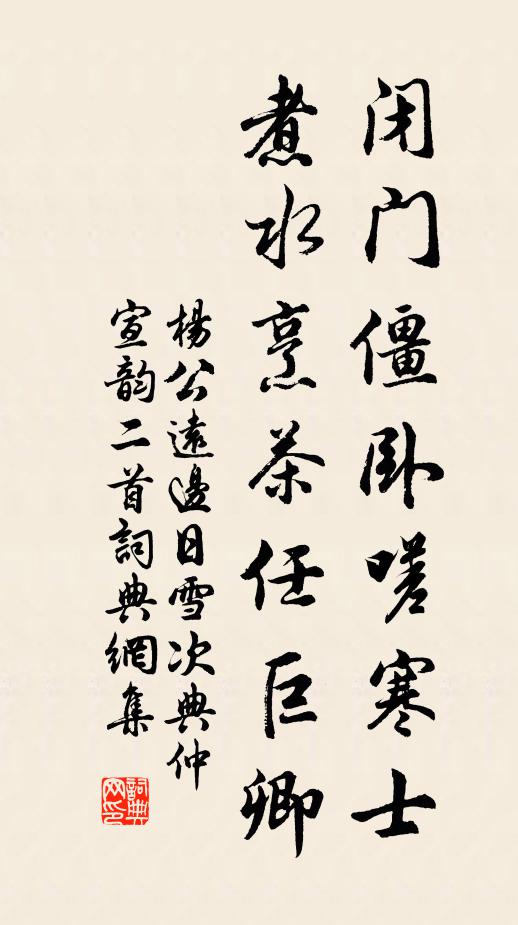 闭门僵卧嗟寒士
煮水烹茶任巨卿
楊公遠邊日雪次典仲
宣韵二首詞典網集
詞典网印